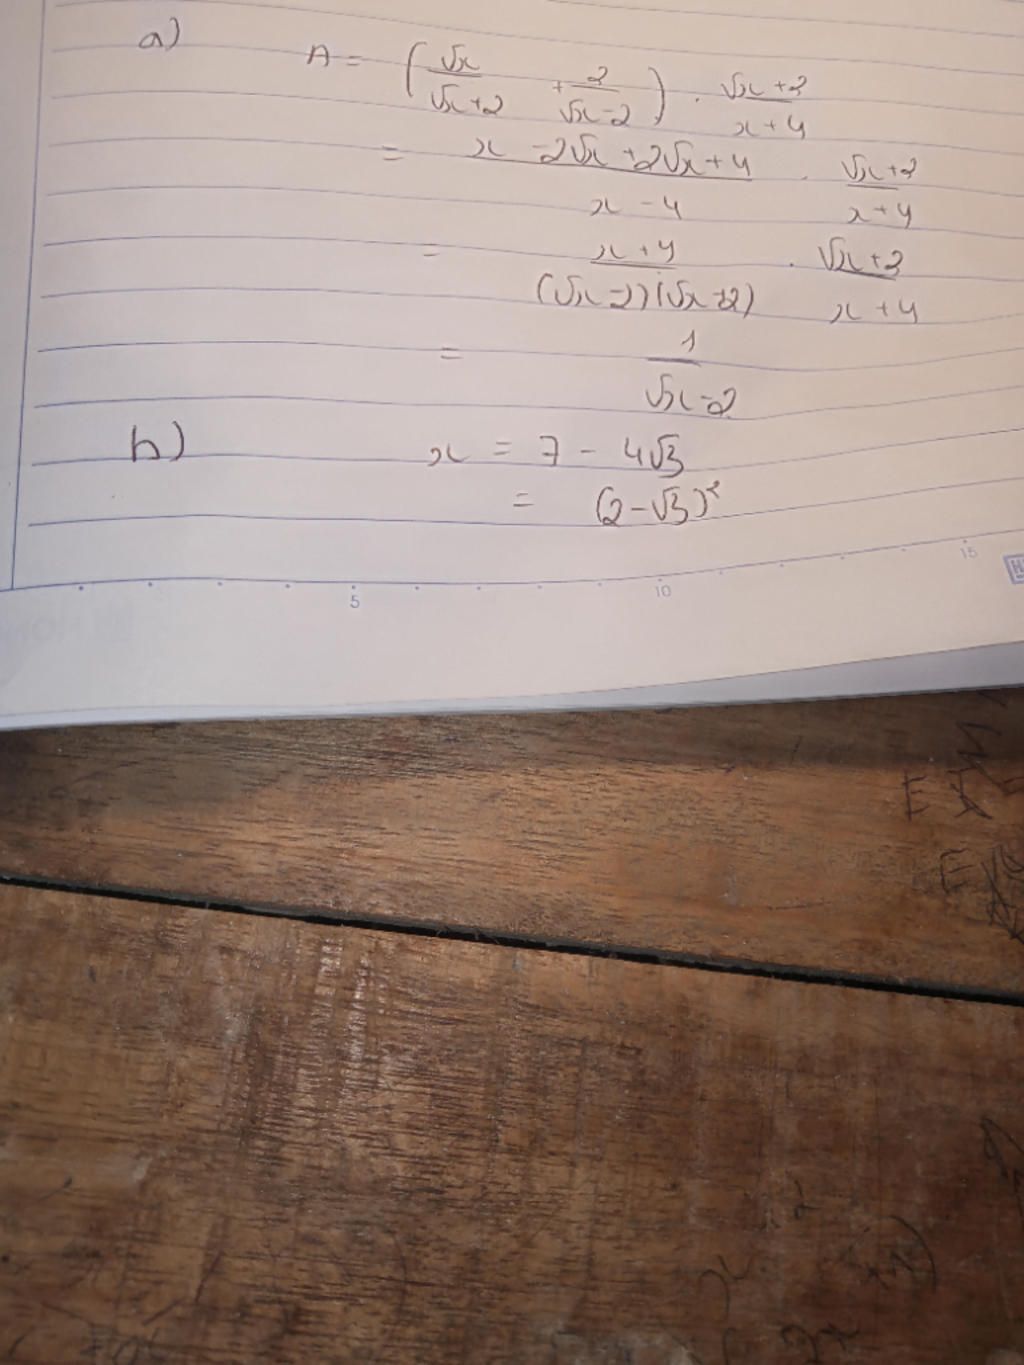 a) A = (√x/√x+2 + 2/√x-2) . √x+2/x+4
= x-2√x+2√x+4/x-4 . √x+2/x+4
= x+4/(√x-2)(√x+2) . √x+2/x+4
= 1/√x-2
b) x = 7 - 4√3
= (2-√3)²
5 10 15